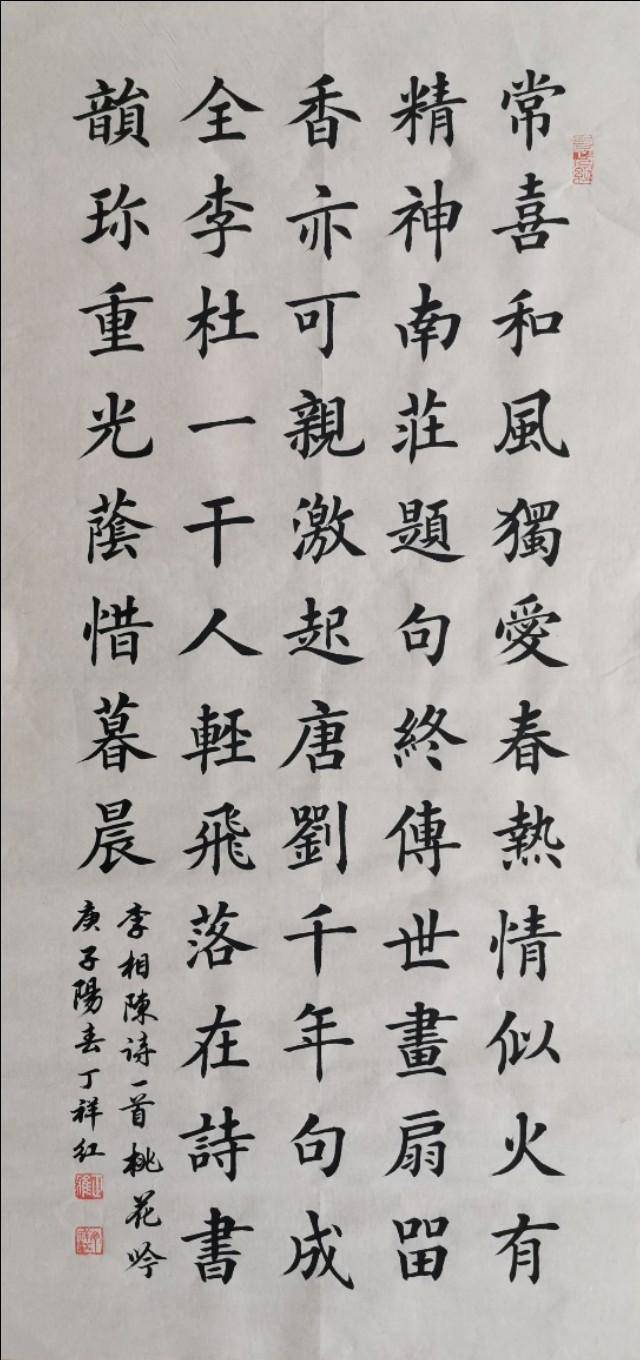 常喜和風獨愛春熱情似火有
精神南莊題句終傳世畫扇畱
香亦可親激起唐劉千年句成
全李杜一干人輕飛落在詩書
韻珎重光蔭惜暮晨
李相陳诗一首桃花吟
庚子陽春丁祥红